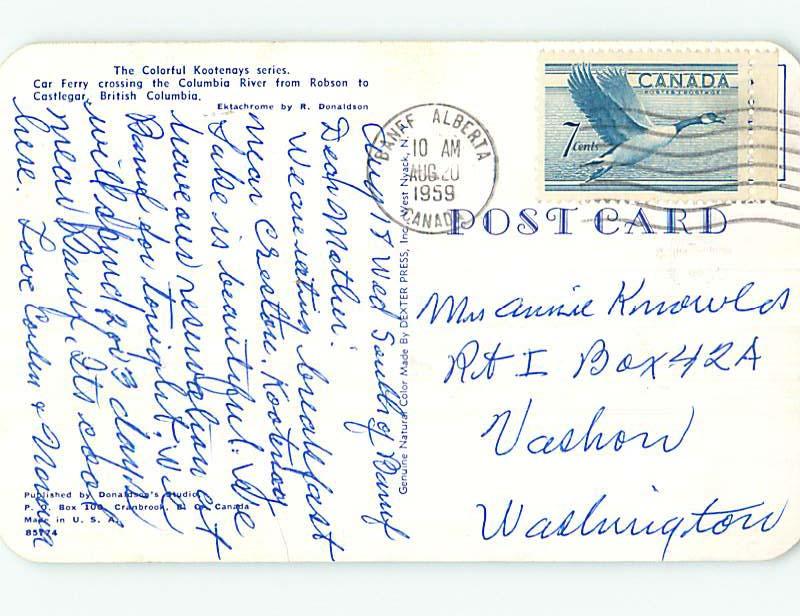 The Colorful Kootenays series.
Car Ferry crossing the Columbia River from Robson to
Castlegar, British Columbia.
Ektachrome by R. Donaldson
CANADA
POSTES POSTAGE
7 cents
BANFF ALBERTA
10 AM
AUG 20
1959
CANADA
POST CARD
Aug 19 Wed South of Banff
Dear Mother:
We are eating breakfast
near Creston. Kootenay
Lake is beautiful. We
have our reservation at
Banff for tonight. We
will spend 2 or 3 days
near Banff. Its cool
here. Love Corda & Norman
Genuine Natural Color Made By DEXTER PRESS, Inc., West Nyack, N.
Mrs Annie Knowles
Rt I Box 42A
Vashon
Washington
Published by Donaldson's Studio
P. O. Box 100, Cranbrook, B. C., Canada
Made in U. S. A.
85774